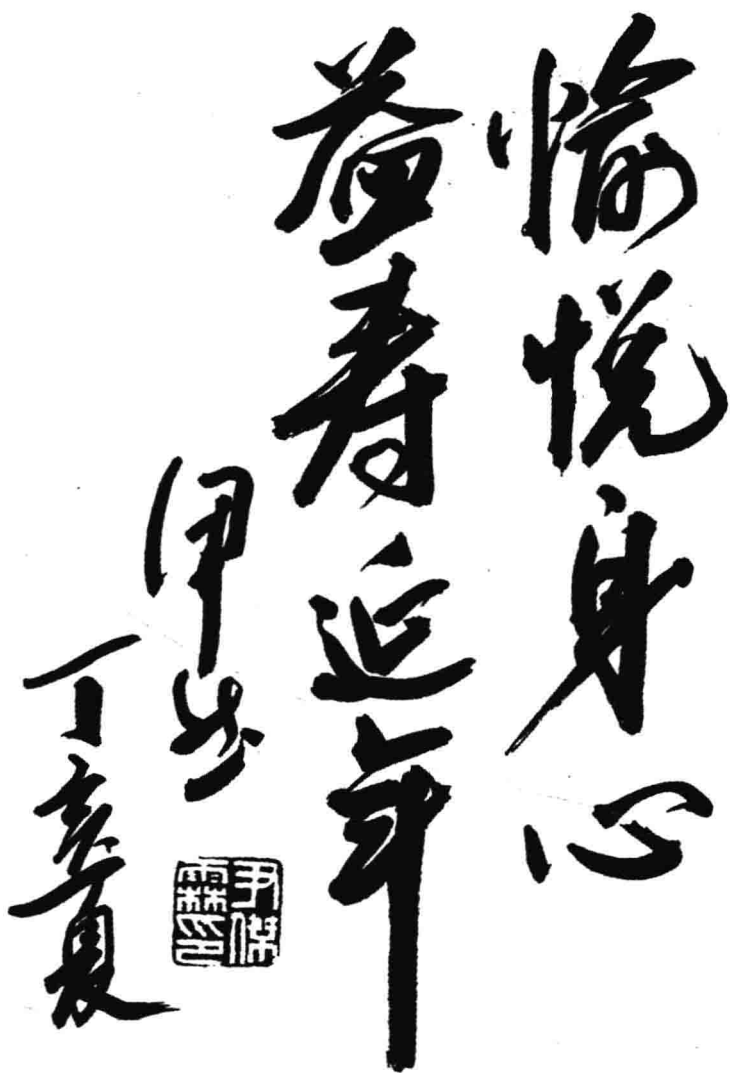 愉悦身心
益寿延年
丁亥夏
尹傑霖印